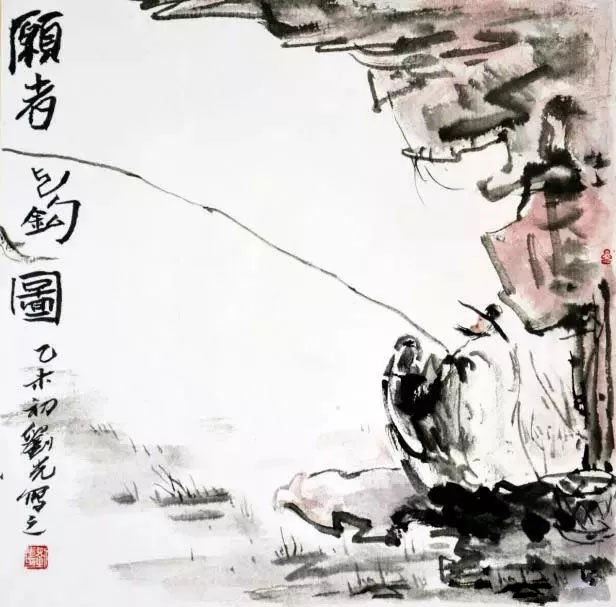 願者上鈎圖
乙未初劉光寫之